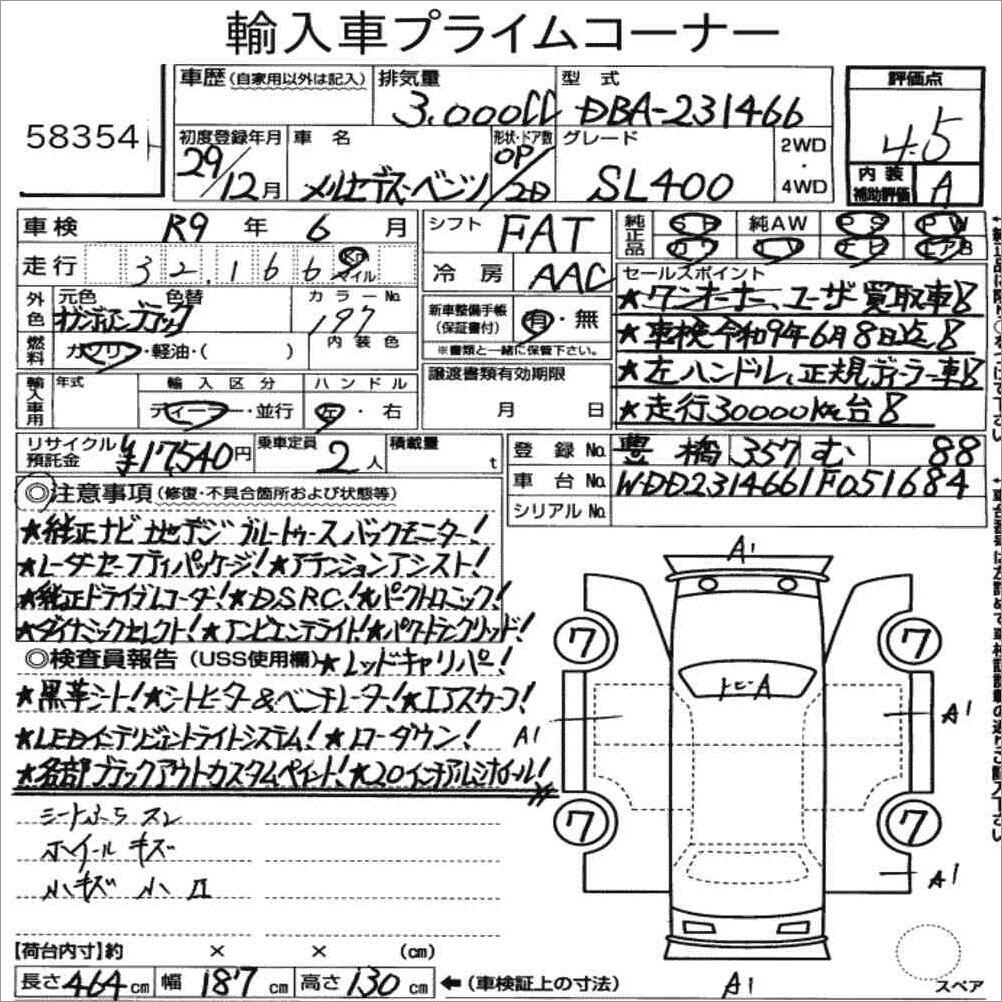 輸入車プライムコーナー
58354
車歴(自家用以外は記入) 排気量 3.000cc 型式 DBA-231466
評価点 4.5
内装補助評価 A
初度登録年月 29/12月 車名 メルセデス・ベンツ 形状・ドア数 OP/2D グレード SL400 2WD・4WD
車検 R9年6月
走行 32,166 Km マイル
外色 元色 色替 カラーNo. 197
燃料 ガソリン・軽油・( ) 内装色
輸入車用 年式 輸入区分 ディーラー・並行 ハンドル 左・右
シフト FAT
冷房 AAC
新車整備手帳(保証書付) 有・無
※書類と一緒に保管下さい。
譲渡書類有効期限 月 日
純正品 SR 純AW PS PW
カワ TV ナビ エアB
セールスポイント
★ワンオーナー、ユーザー買取車!!
★車検令和9年6月8日迄!!
★左ハンドル、正規ディーラー車!!
★走行30000Km台!!
リサイクル預託金 ¥17,540円 乗車定員 2人 積載量 t
登録No. 豊橋 357 む 88
車台No. WDD2314661F051684
シリアルNo.
◎注意事項(修復・不具合箇所および状態等)
★純正ナビ 地デジ ブルートゥース バックモニター!
★レーダーセーフティパッケージ!★アテンションアシスト!
★純正ドライブレコーダー!★DSRC!★パークトロニック!
★ダイナミックセレクト!★アンビエンテライト!★パワートランクリッド!
◎検査員報告(USS使用欄)★レッドキャリパー!
★黒革シート!★シートヒーター&ベンチレーター!★エアスカーフ!
★LEDインテリジェントライトシステム!★ローダウン!
★各部ブラックアウトカスタムペイント!★20インチアルミホイール!
シートふちスレ
ホイール キズ
小キズ 小凹
A1
7 7
トビーA
A1 A1
7 7
A1
A1
スペア
【荷台内寸】約 × × (cm)
長さ 464 cm 幅 187 cm 高さ 130 cm ←(車検証上の寸法)